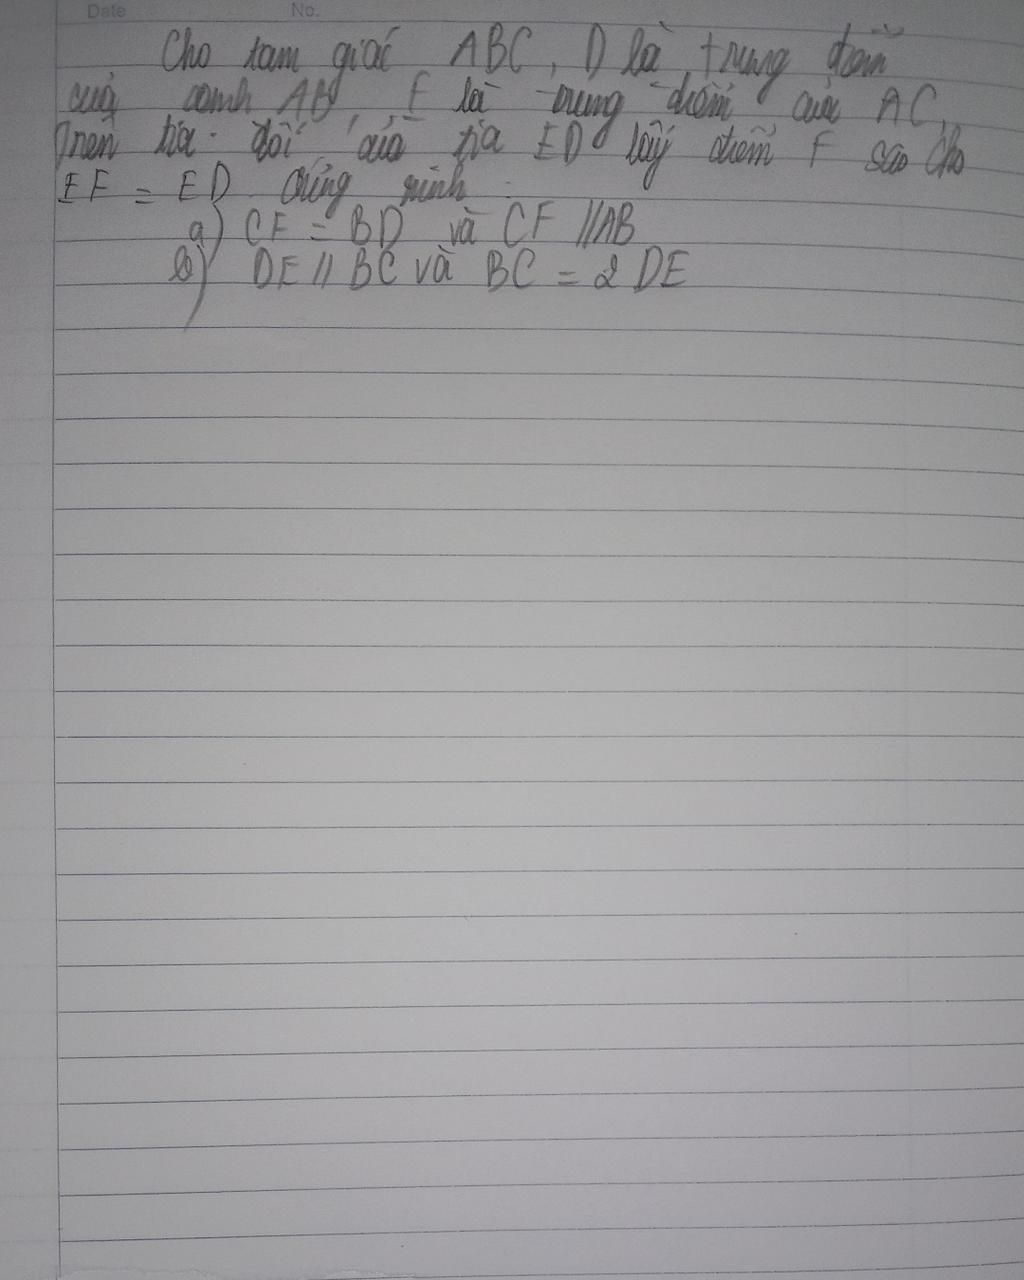 Date No.
Cho tam giác ABC, D là trung điểm
của cạnh AB, E là trung điểm của AC,
Trên tia đối của tia ED lấy điểm F sao cho
EF = ED chứng minh
a) CF = BD và CF // AB
b) DE // BC và BC = 2 DE